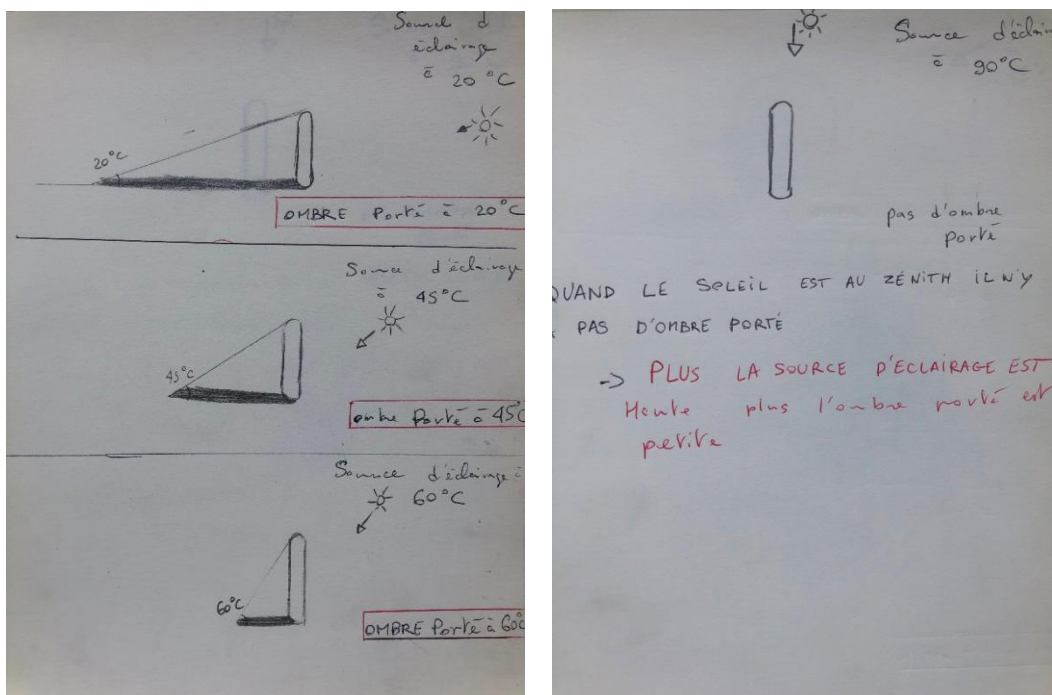 Source d
éclairage
à 20°C
20°C
OMBRE Porté à 20°C
Source d'éclairage
à 45°C
45°C
ombre Porté à 45C
Source d'éclairage à
60°C
60°C
OMBRE Porté à 60c
Source d'éclair
à 90°C
pas d'ombre
porté
QUAND LE SOLEIL EST AU ZÉNITH IL N'Y
PAS D'OMBRE PORTÉ
-> PLUS LA SOURCE D'ECLAIRAGE EST
Haute plus l'ombre porté est
petite